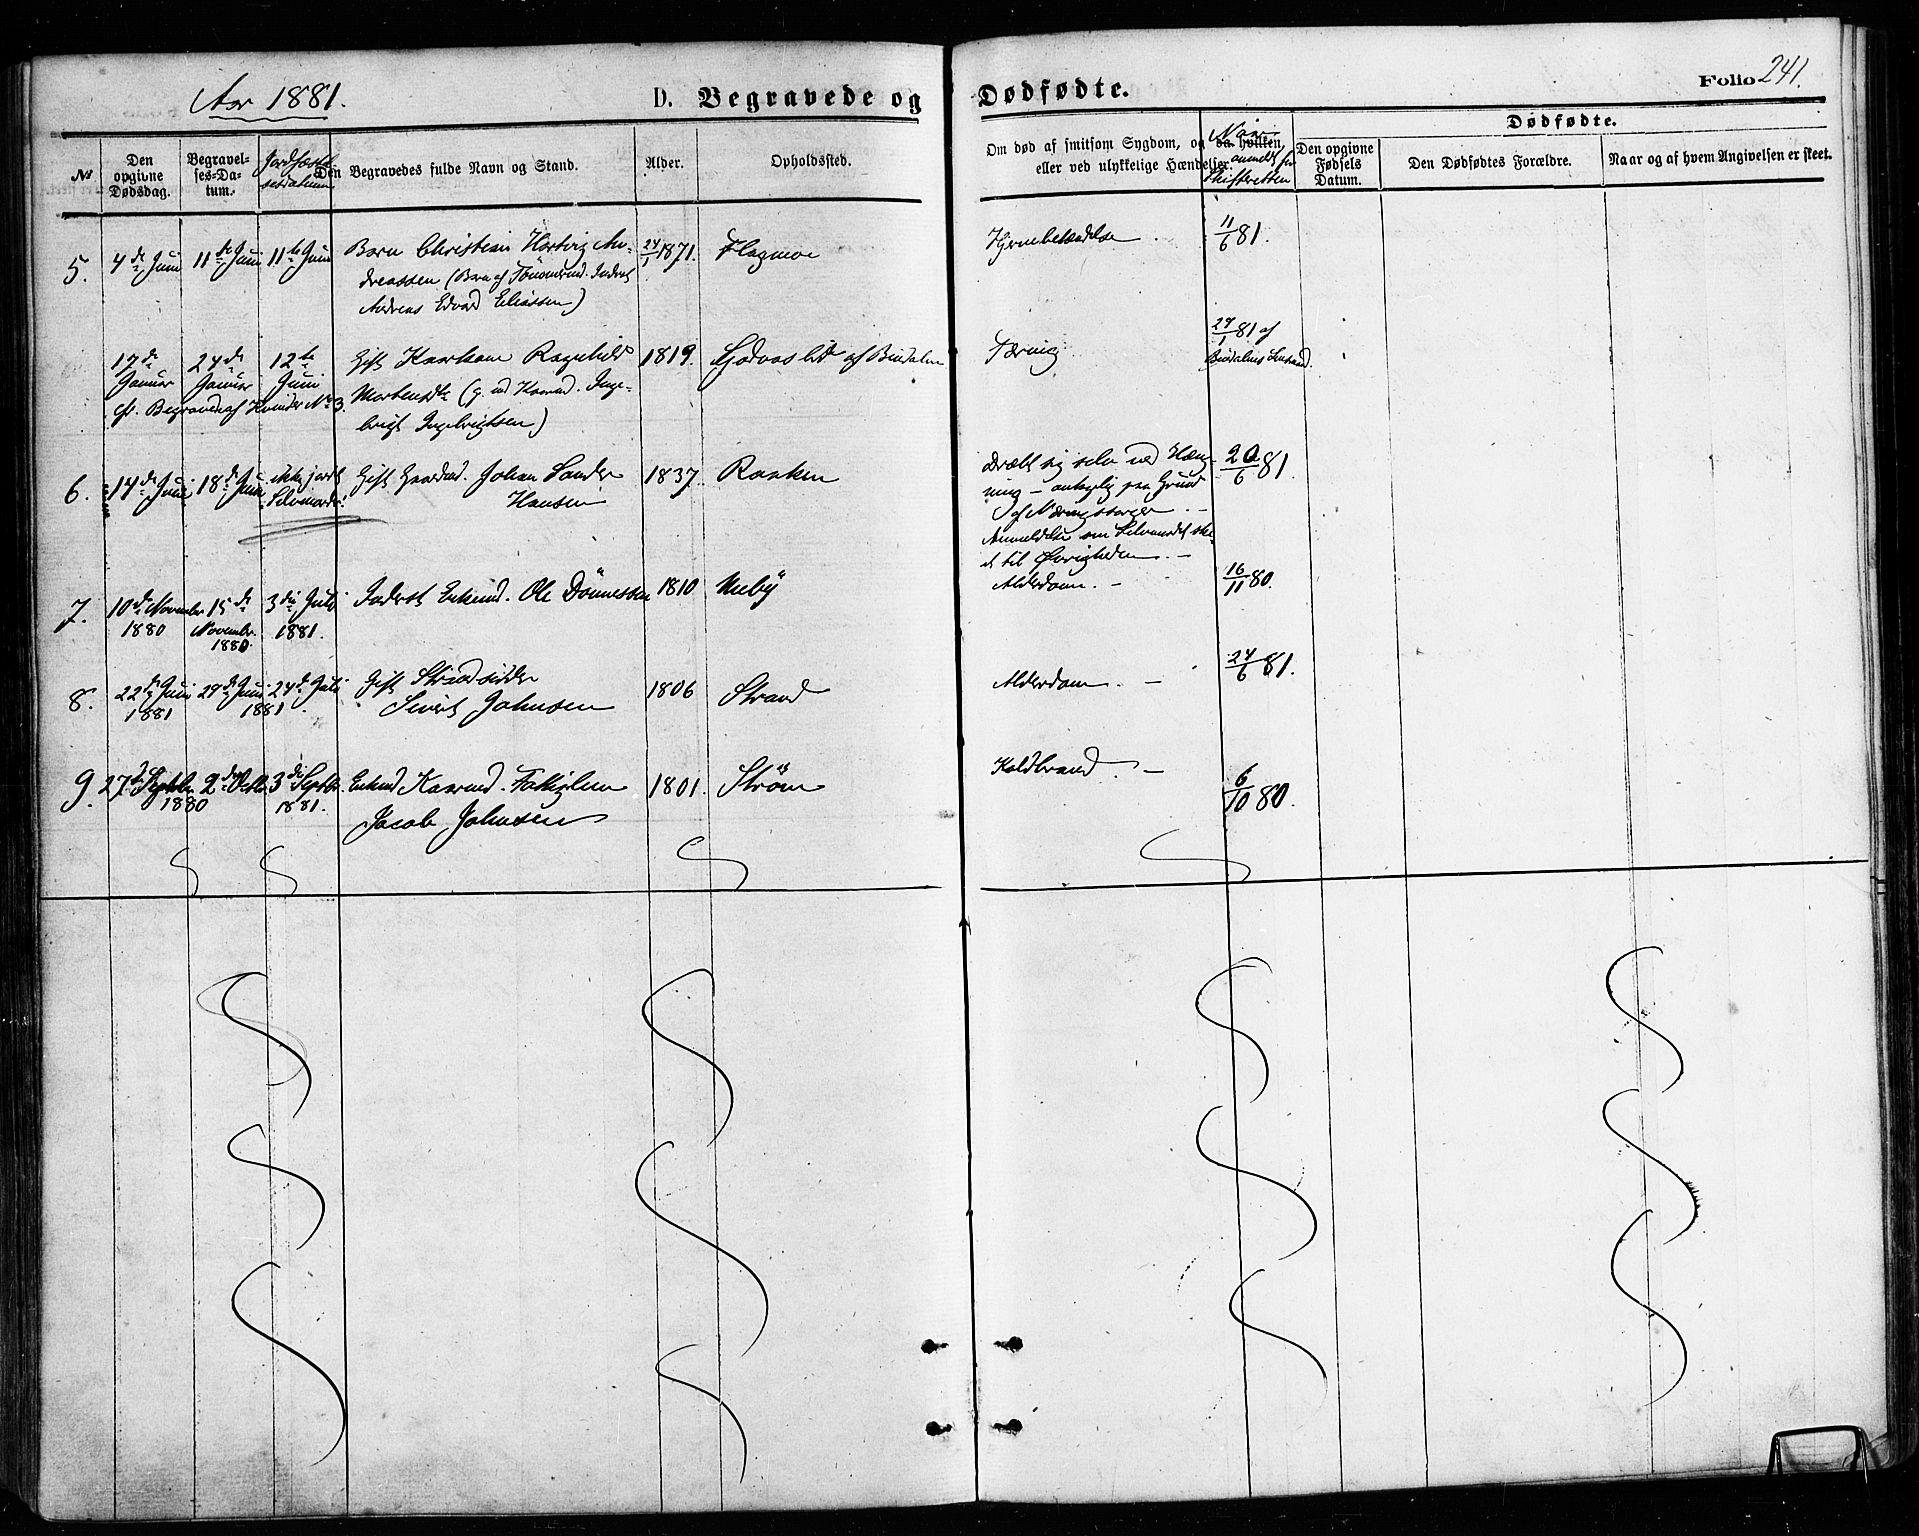 Aar 1881.
D. Begravede og Dødfødte.
Folio 241.
№
Den opgivne Dødsdag.
Begravelses-Datum.
Jordfæstelsesdatum
Den Begravedes fulde Navn og Stand.
Alder.
Opholdssted.
Om død af smitsom Sygdom, og da hvilken,
eller ved ulykkelige Hændelser.
Naar anmeldt for Skifteretten
Dødfødte.
Den opgivne Fødsels Datum.
Den Dødfødtes Forældre.
Naar og af hvem Angivelsen er skeet.
5. 4de Juni 11te Juni 11te Juni Barn Christian Hartvig An- 24/1 1871. Flagmoe Hjernebetændelse 11/6 81.
dreassen (Barn af Inderst
Andreas Edvard Eliassen)
17de Januar 24de Januar 12te Juni Gift Ragnhild 1819. af Bindalen Tæring 27/1 81 af Bindalens
Mortensdtr (g. m. Inge-
cfr. Begravede af Kvinder No 3.
brigt Ingebrigtsen)
6. 14de Juni 18de Juni ikke jordf. Selvmorder! Gift Gaardmd. Johan Sander 1837. Ranken Dræbt sig selv ved Hæng- 20/6 81.
Hansen
ning - antagelig paa Grund
af Næringssorger
Anmeldelse om Selvmordet ske-
et til Øvrigheden. -
7. 10de November 1880 15de November 1880. 3die Juli 1881. Inderst Enkemd. Ole Dönnessen 1810 Meby Alderdom. - 16/11 80.
8. 22de Juni 1881 29de Juni 24de Juli 1881. Gift Strandsidder 1806 Strand Alderdom. - 24/6 81.
Sivert Johnsen
9. 27de Septbr 1880 2den Octb. 3die Septbr 1881. Enkemd Fattiglem 1801. Ström Koldbrand. - 6/10 80.
Jacob Johnsen